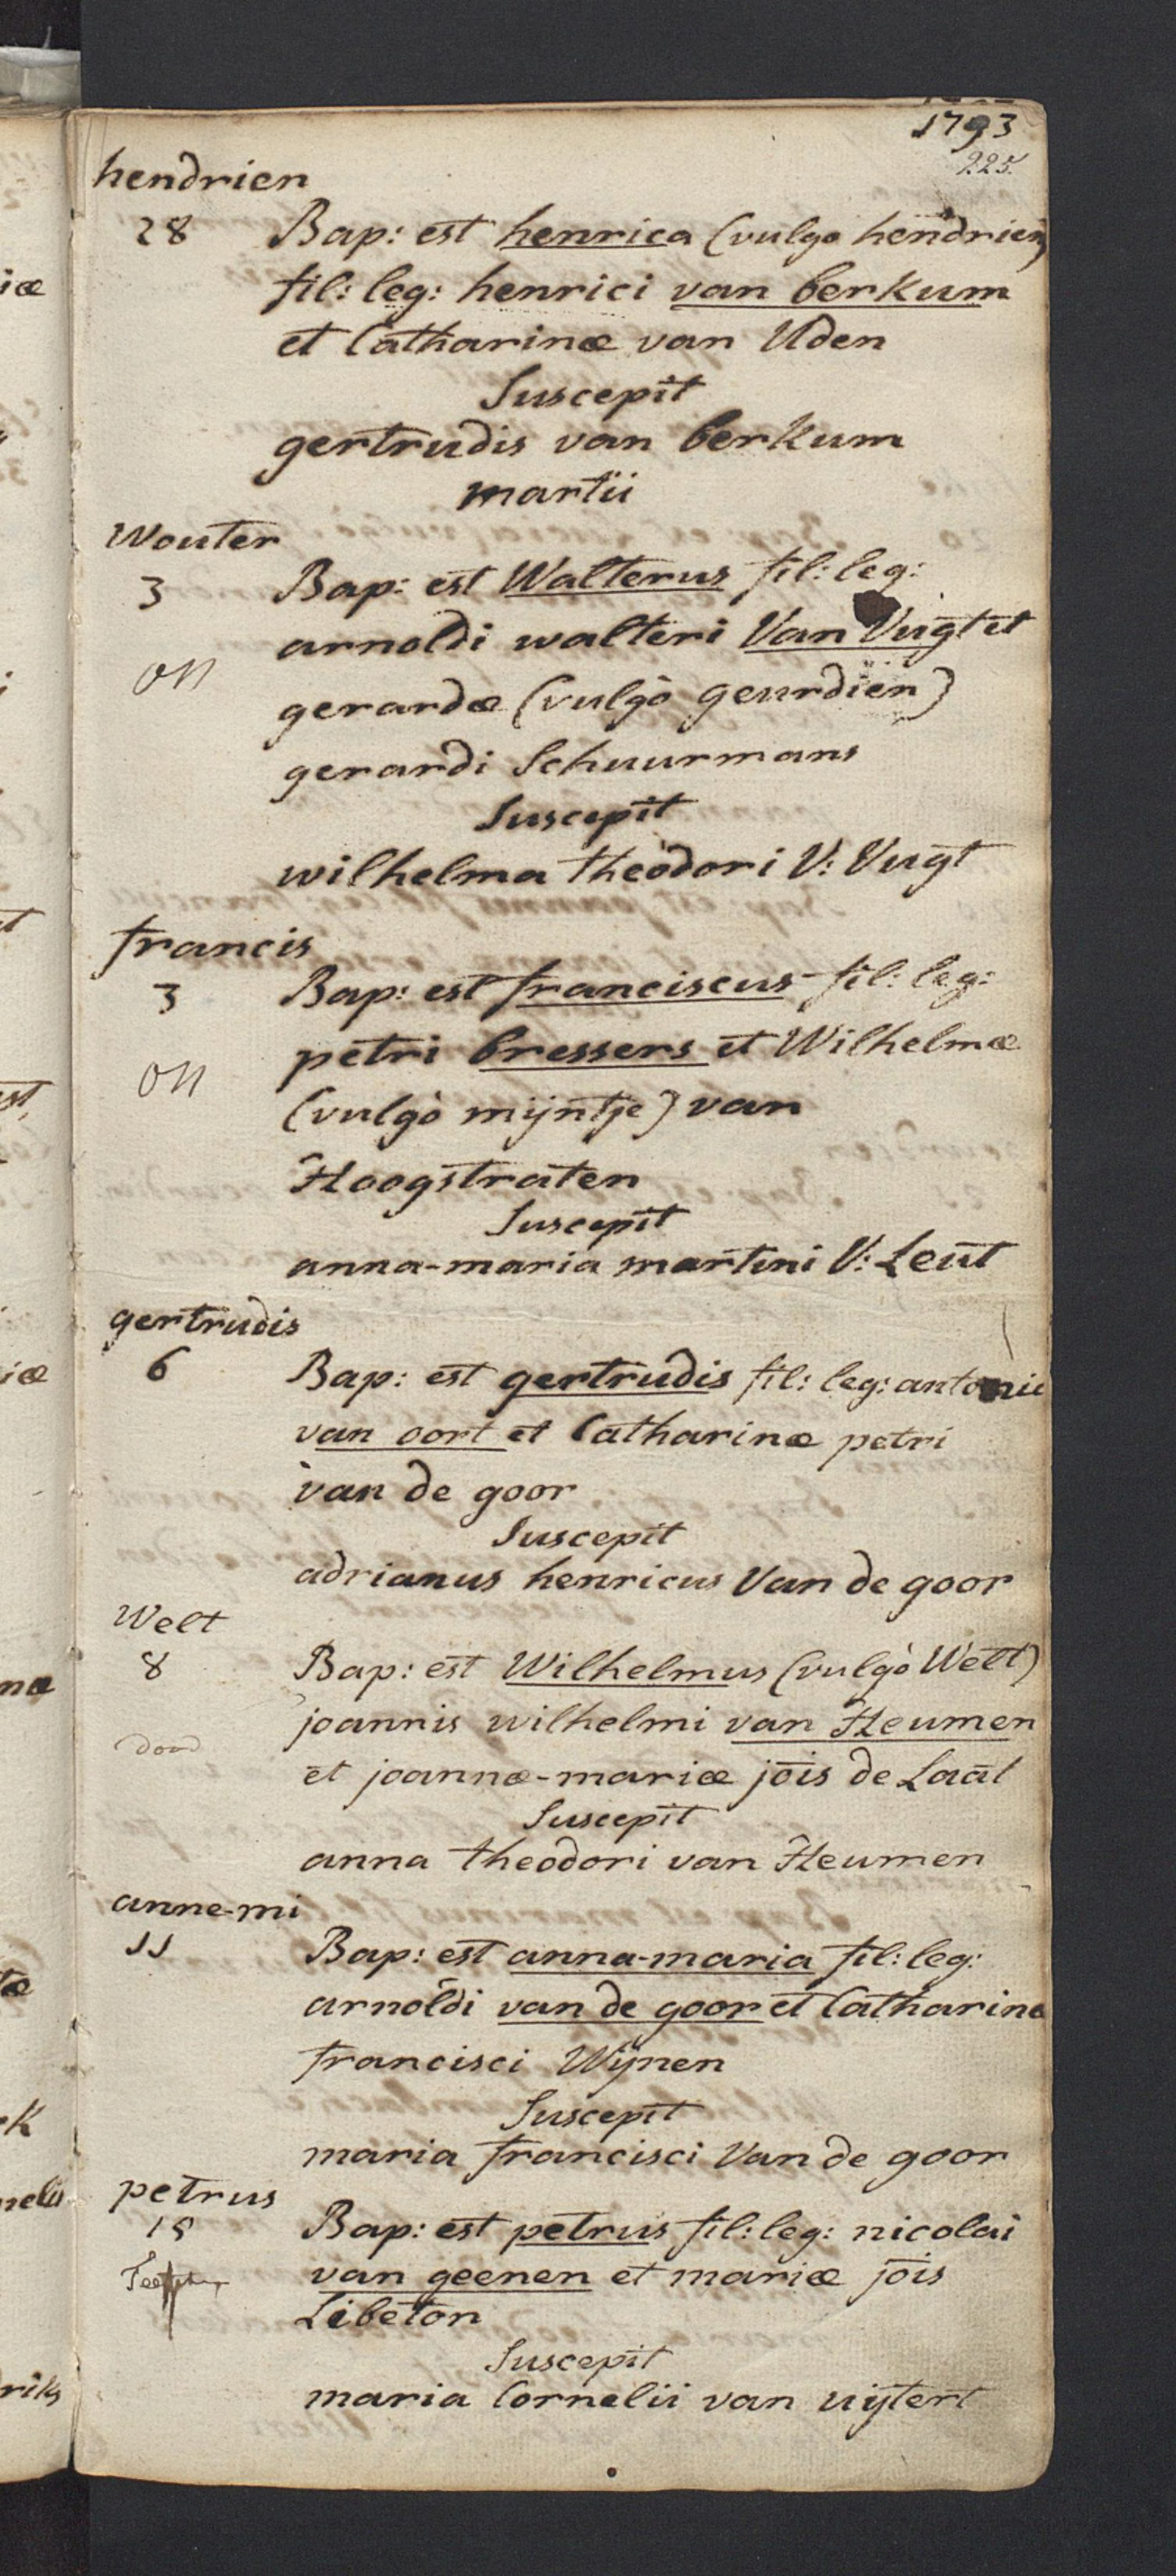 1793
225.
hendrien
28 Bap: est henrica (vulgo hendrien)
fil: leg: henrici van berkum
et Catharinæ van Uden
Suscepit
gertrudis van berkum
martii
Wouter
3 Bap: est Walterus fil: leg:
arnoldi walteri Van Vugt et
on gerardæ (vulgò geurdien)
gerardi Schuurmans
Suscepit
wilhelma theodori V: Vugt
francis
3 Bap: est franciscus fil: leg:
petri bressers et Wilhelmæ
on (vulgò mijntje) van
Hoogstraten
Suscepit
anna-maria martini V: Leut
gertrudis
6 Bap: est gertrudis fil: leg: antonii
van oort et Catharinæ petri
van de goor
Suscepit
adrianus henricus Van de goor
Welt
8 Bap: est Wilhelmus (vulgò Welt)
joannis wilhelmi van Heumen
dood et joannæ-mariæ jois de Laat
Suscepit
anna theodori van Heumen
anne-mi
11 Bap: est anna-maria fil: leg:
arnoldi van de goor et Catharinæ
francisci Wijnen
Suscepit
maria francisci Van de goor
petrus
18 Bap: est petrus fil: leg: nicolai
van geenen et mariæ jois
Libeton
Suscepit
maria Cornelii van uijtert